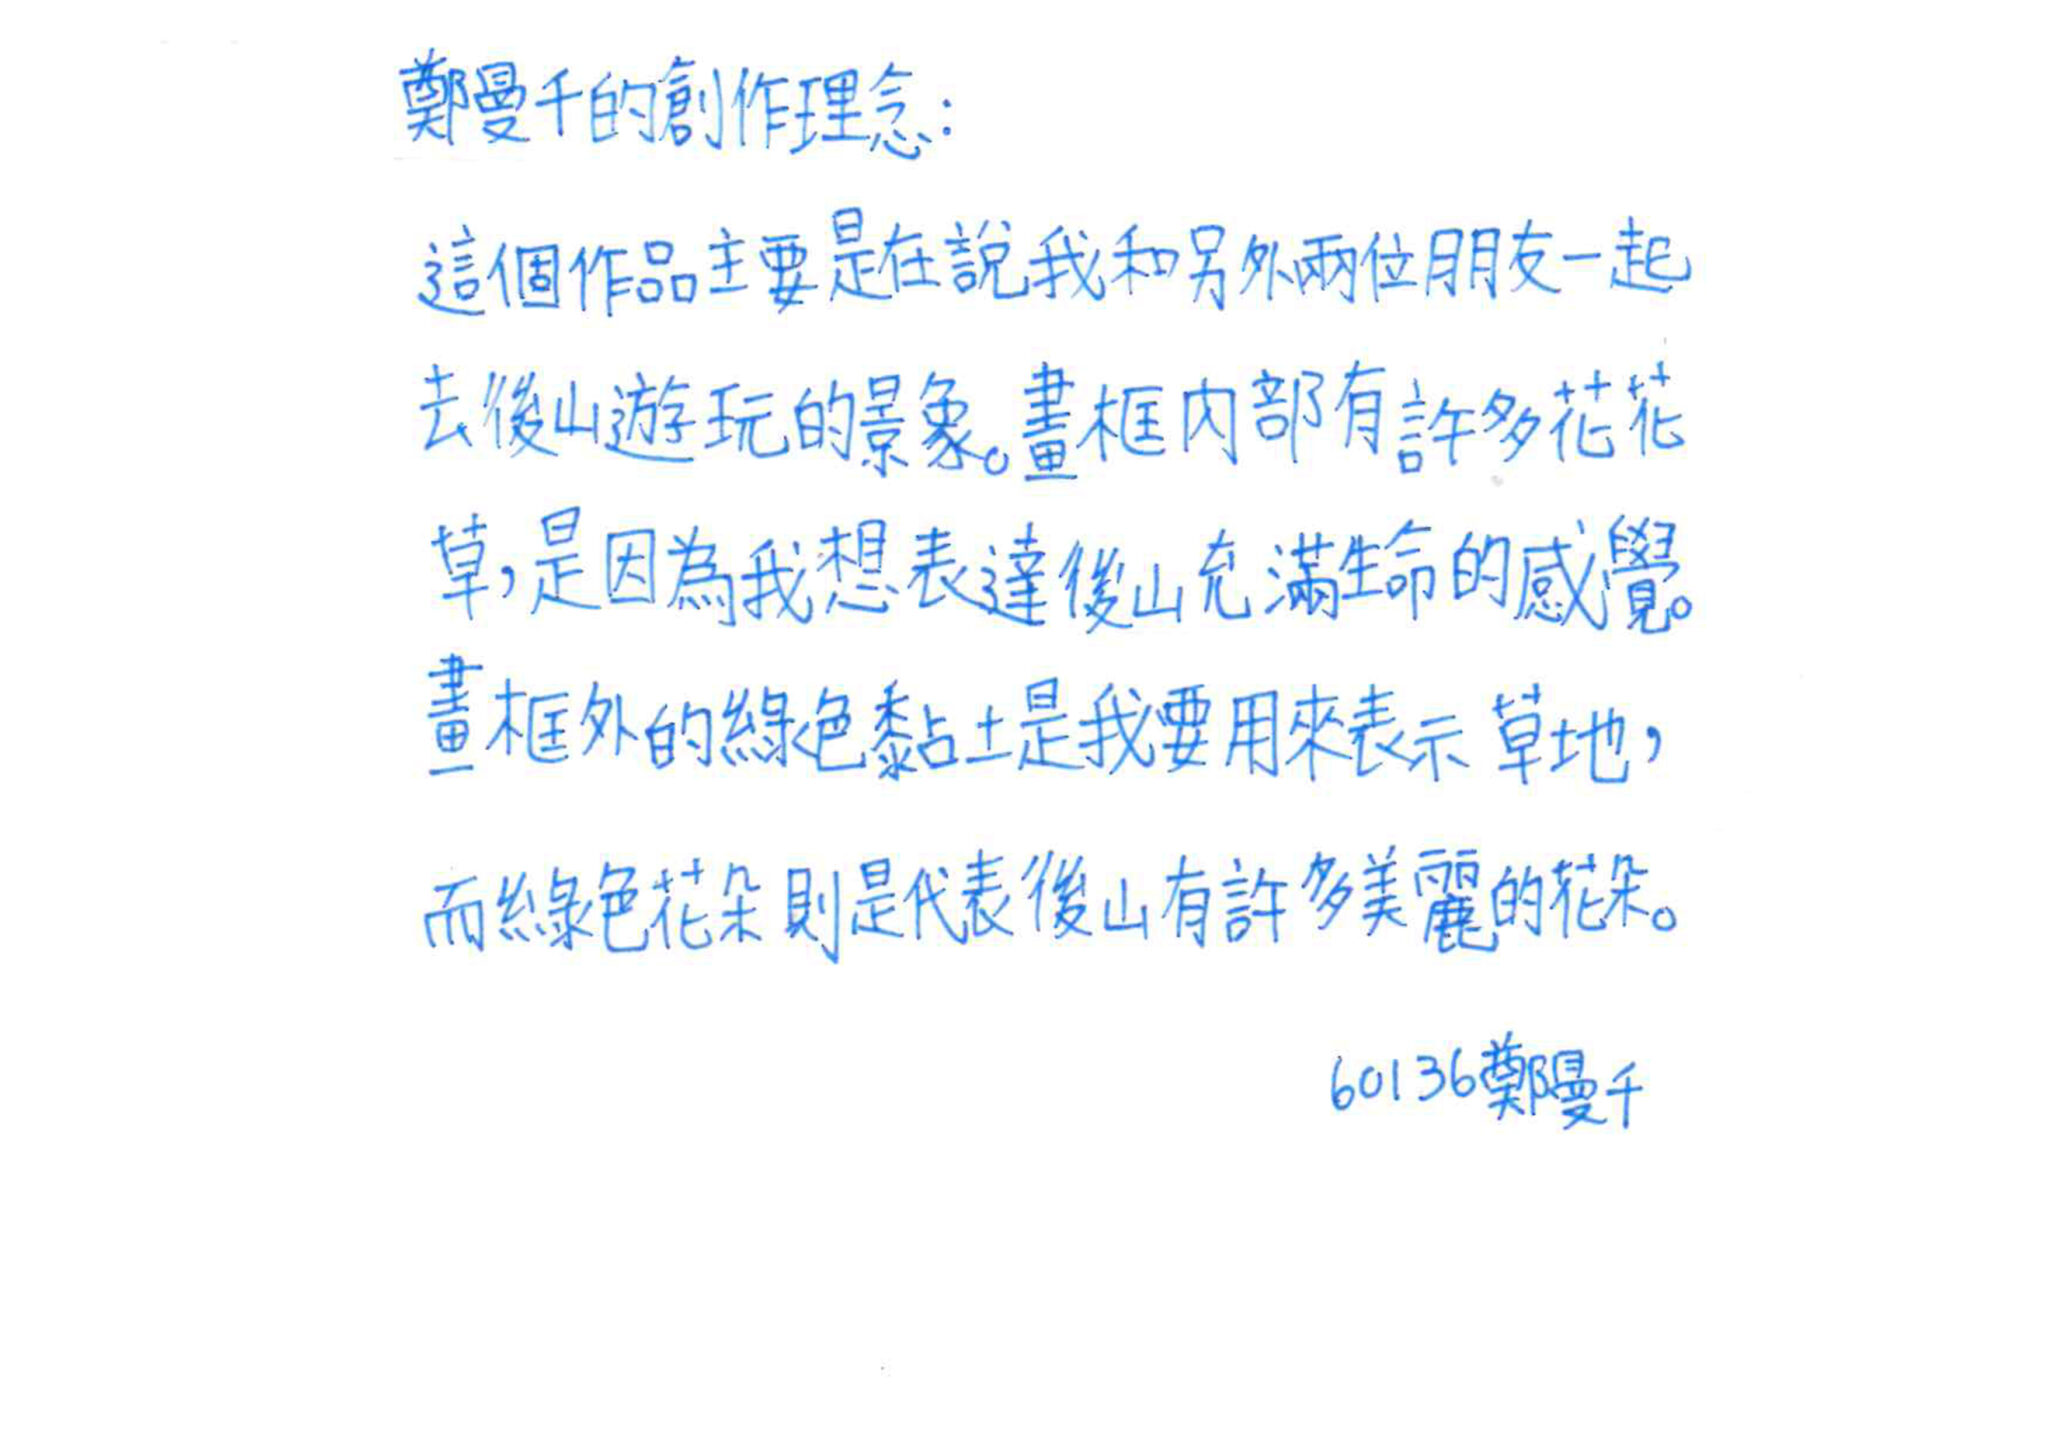 鄭曼千的創作理念：
這個作品主要是在說我和另外兩位朋友一起
去後山遊玩的景象。畫框內部有許多花花
草，是因為我想表達後山充滿生命的感覺。
畫框外的綠色黏土是我要用來表示草地，
而綠色花朵則是代表後山有許多美麗的花朵。
60136鄭曼千